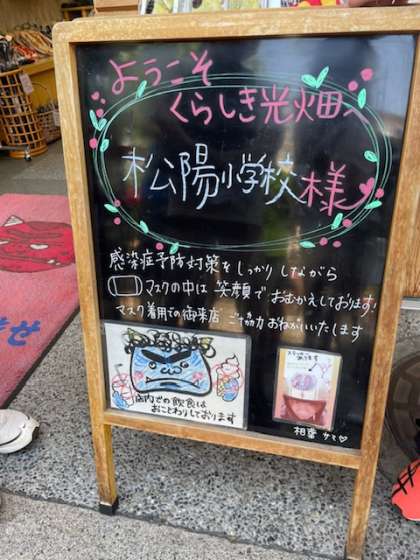 ようこそ
くらしき光畑へ
松陽小学校様
感染症予防対策をしっかりしながら
マスクの中は笑顔でおむかえしております!
マスク着用での御来店ご協力おねがいいたします
店内での飲食は
おことわりしております
あります
せ